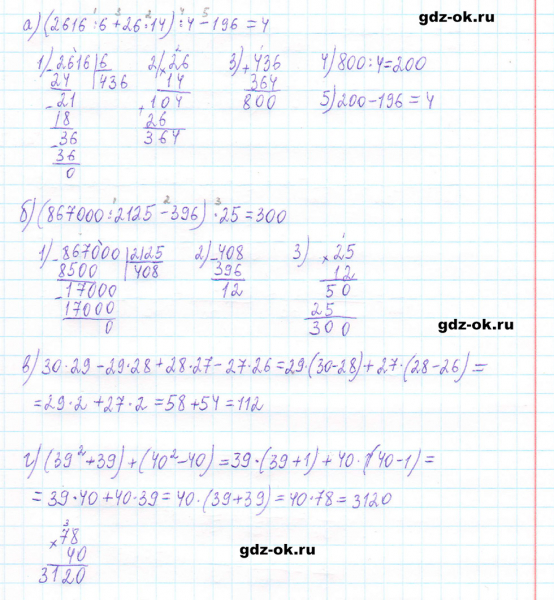 gdz-ok.ru
а) (2616 : 6 + 26 · 14) : 4 − 196 = 4
1) 2616 | 6
24 | 436
21
18
36
36
0
2) × 26
14
+ 104
26
364
3) + 436
364
800
4) 800 : 4 = 200
5) 200 − 196 = 4
б) (867000 : 2125 − 396) · 25 = 300
1) 867000 | 2125
8500 | 408
17000
17000
0
2) − 408
396
12
3) × 25
12
50
25
300
gdz-ok.ru
в) 30 · 29 − 29 · 28 + 28 · 27 − 27 · 26 = 29 · (30 − 28) + 27 · (28 − 26) =
= 29 · 2 + 27 · 2 = 58 + 54 = 112
г) (39² + 39) + (40² − 40) = 39 · (39 + 1) + 40 · (40 − 1) =
= 39 · 40 + 40 · 39 = 40 · (39 + 39) = 40 · 78 = 3120
× 78
40
3120
gdz-ok.ru